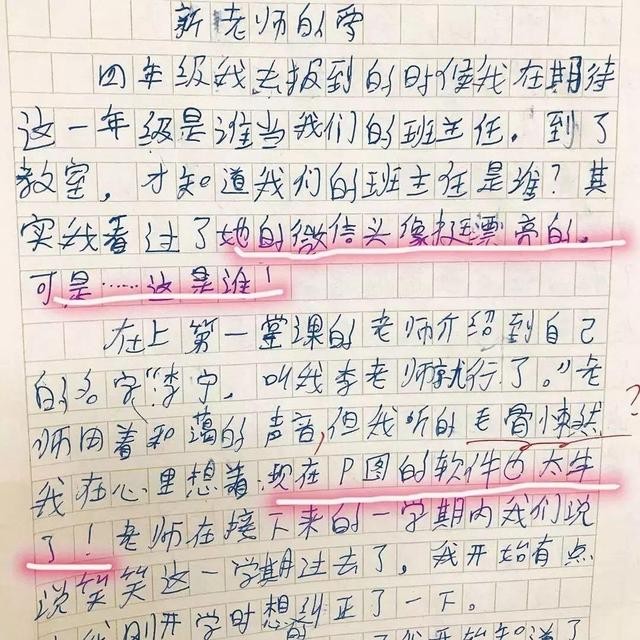 新老师的
四年级我去报到的时候我在期待
这一年级是谁当我们的班主任。到了
教室，才知道我们的班主任是谁？其
实我看过了她的微信头像挺漂亮的。
可是……这是谁！
在上第一堂课的老师介绍到自己
的名字“李宁，叫我李老师就行了。”老
师用着和蔼的声音，但我听的毛骨悚然
?
我在心里想着：现在P图的软件也太牛
了！老师在接下来的一学期内我们说
说笑笑这一学期过去了，我开始有点
刚开学时想纠正了一下。
的
开始知道了